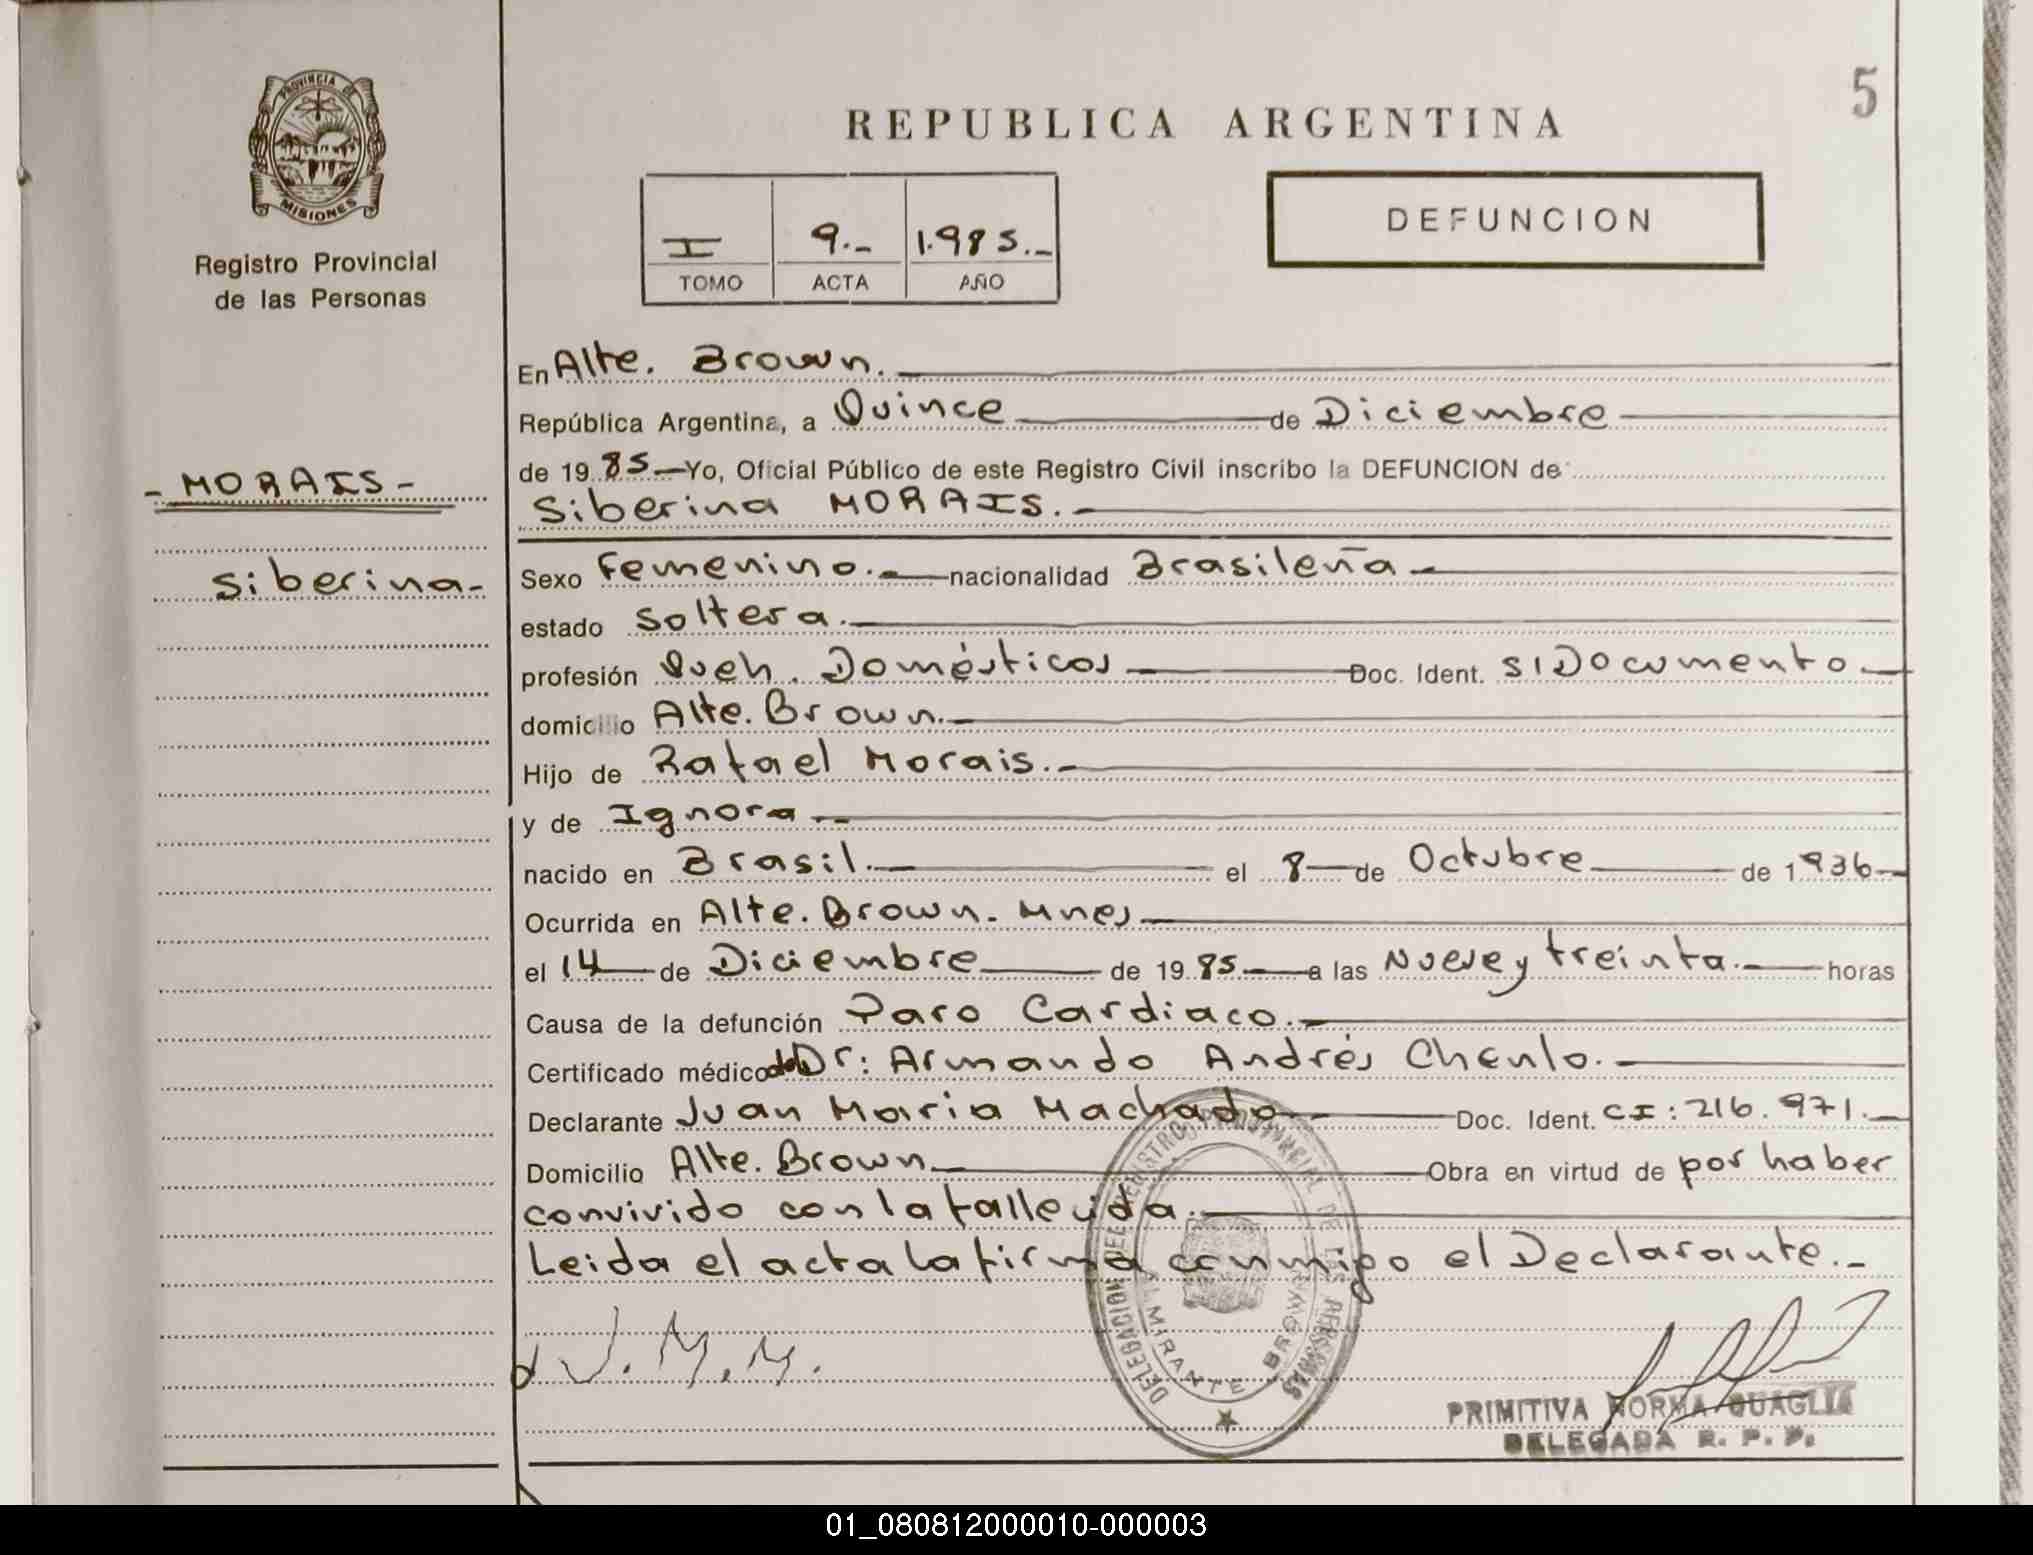 PROVINCIA DE
MISIONES
Registro Provincial
de las Personas
- MORAIS -
Siberina-
5
REPUBLICA ARGENTINA
I 9.- 1.985.-
TOMO ACTA AÑO
DEFUNCION
En Alte. Brown.
República Argentina, a Quince de Diciembre
de 19 85 Yo, Oficial Público de este Registro Civil inscribo la DEFUNCION de
Siberina MORAIS.-
Sexo Femenino.- nacionalidad Brasileña-
estado Soltera.
profesión Queh. Domésticos Doc. Ident. S/Documento
domicilio Alte. Brown.-
Hijo de Rafael Morais.-
y de Ignora.-
nacido en Brasil. el 8 de Octubre de 1936
Ocurrida en Alte. Brown. Mnes
el 14 de Diciembre de 1985 a las Nueve y treinta. horas
Causa de la defunción Paro Cardiaco.-
Certificado médico del Dr: Armando Andrés Chenlo.-
Declarante Juan Maria Machado Doc. Ident. CI: 216.971.-
Domicilio Alte. Brown Obra en virtud de por haber
convivido con la fallecida.
Leida el acta la firma conmigo el Declarante.-
J. M. M.
DELEGACION DEL REGISTRO PROVINCIAL DE LAS PERSONAS
ALMIRANTE BROWN
PRIMITIVA NORMA QUAGLIA
DELEGADA R. P. P.
01_080812000010-000003